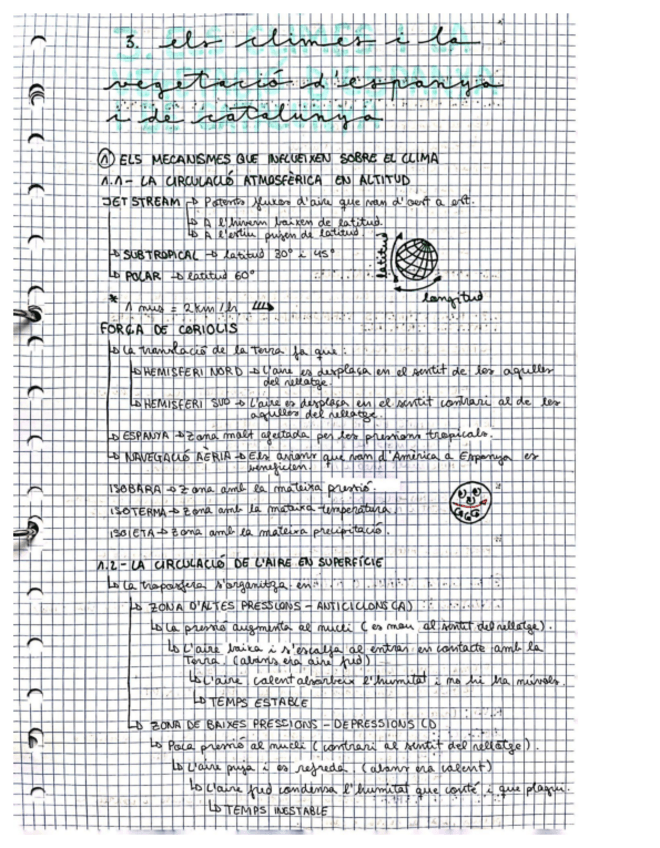 3. els climes i la
vegetació d'espanya
i de catalunya
① ELS MECANISMES QUE INFLUEIXEN SOBRE EL CLIMA
1.1- LA CIRCULACIÓ ATMOSFÈRICA EN ALTITUD
JET STREAM → Potents fluxos d'aire que van d'oest a est.
↳ A l'hivern baixen de latitud.
↳ A l'estiu pugen de latitud.
↳ SUBTROPICAL → latitud 30° i 45°
↳ POLAR → latitud 60°
latitud
longitud
* 1 nus = 2 km/h
FORÇA DE CORIOLIS
↳ La translació de la Terra fa que:
↳ HEMISFERI NORD → L'aire es desplaça en el sentit de les agulles
del rellotge.
↳ HEMISFERI SUD → L'aire es desplaça en el sentit contrari al de les
agulles del rellotge.
↳ ESPANYA → Zona molt afectada per les pressions tropicals.
↳ NAVEGACIÓ AÈRIA → Els avions que van d'Amèrica a Espanya es
beneficien.
ISOBARA → Zona amb la mateixa pressió.
ISOTERMA → Zona amb la mateixa temperatura.
ISOIETA → Zona amb la mateixa precipitació.
1.2- LA CIRCULACIÓ DE L'AIRE EN SUPERFÍCIE
↳ La troposfera s'organitza en:
↳ ZONA D'ALTES PRESSIONS - ANTICICLONS (A)
↳ La pressió augmenta al nucli (es mou al sentit del rellotge).
↳ L'aire baixa i s'escalfa al entrar en contacte amb la
Terra. (abans era aire fred)
↳ L'aire calent absorbeix l'humitat i no hi ha núvols.
↳ TEMPS ESTABLE
↳ ZONA DE BAIXES PRESSIONS - DEPRESSIONS (D)
↳ Poca pressió al nucli (contrari al sentit del rellotge).
↳ L'aire puja i es refreda. (abans era calent)
↳ L'aire fred condensa l'humitat que conté i que plogui.
↳ TEMPS INESTABLE